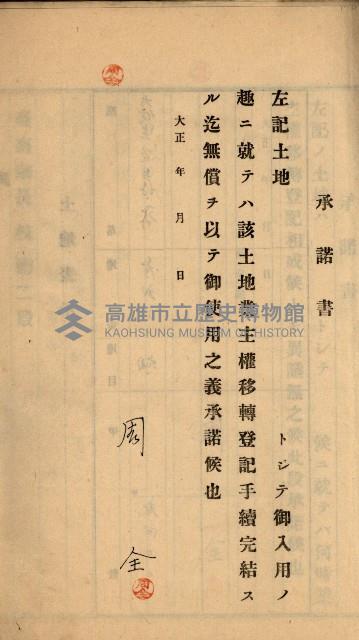 承諾書
左記土地　　　　　　トシテ御入用ノ
趣ニ就テハ該土地業主權移轉登記手續完結ス
ル迄無償ヲ以テ御使用之義承諾候也
大正　年　月　日
周　　全
高雄市立歷史博物館
KAOHSIUNG MUSEUM OF HISTORY